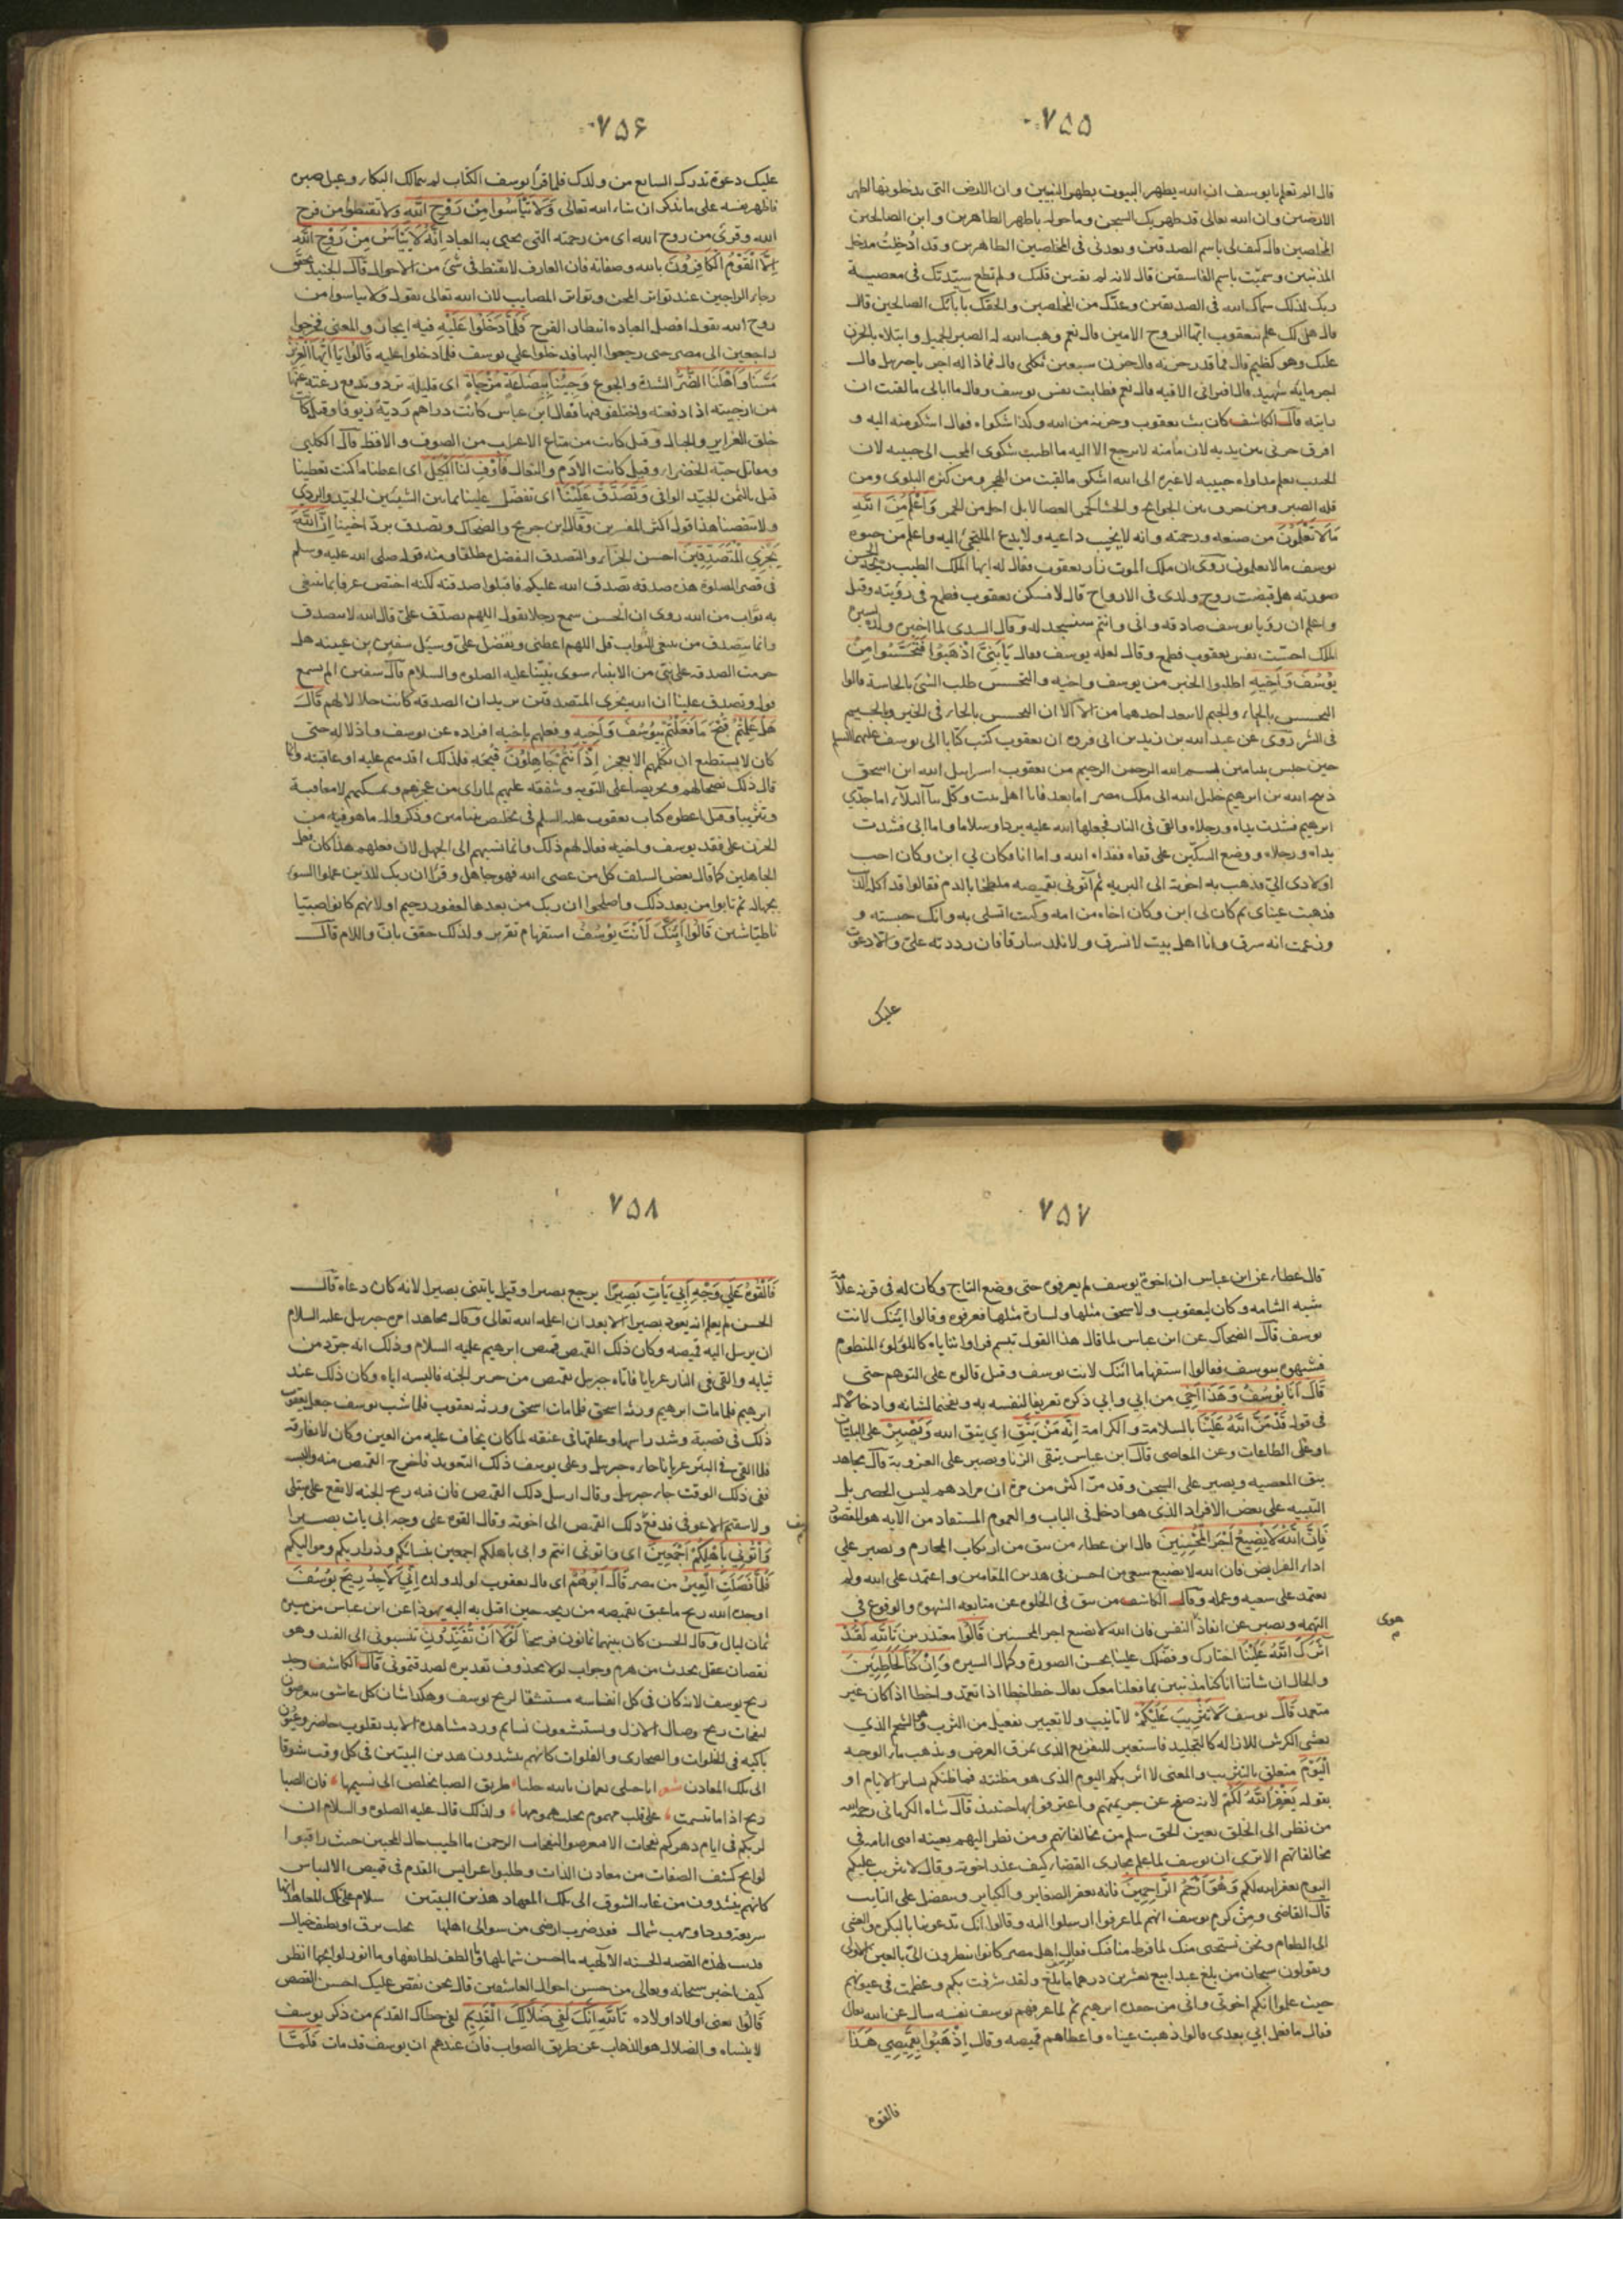 ٧٥٥
قال الم تعلم يا يوسف ان الله يطهر البيوت بطهر النبيين وان الارض التى يدخلونها اطهر
الارضين وان الله تعالى قد طهر بك السجن وما حوله يا طهر الطاهرين وابن الصالحين
المخلصين قال كيف لى باسم الصديقين وتعدنى فى المخلصين الطاهرين وقد ادخلت مدخل
المذنبين وسميت باسم الفاسقين قال لانه لم يفتن قلبك ولم تطع سيدتك فى معصية
ربك لذلك سماك الله فى الصديقين وعدك من المخلصين والحقك بآبائك الصالحين قال
قال هل لك علم بيعقوب ايها الروح الامين قال نعم وهب الله له الصبر الجميل وابتلاه بالحزن
عليك وهو كظيم قال فما قدر حزنه قال حزن سبعين ثكلى قال فماذا له اجر يا جبريل قال
اجر مائة شهيد قال افترانى الاقيه قال نعم فطابت نفس يوسف وقال ما ابالى ما لقيت ان
رايته قال الكاشف كان بث يعقوب وحزنه من الله وكذا شكواه فقال اشكو منه اليه و
افرق حزنى بين يديه لان مأمنه لا يرجع الا اليه ما اطيب شكوى المحب الى حبيبه لان
الحبيب يعلم مداواة حبيبه لا غيره الى الله اشكى ما لقيت من الهجر ومن كثرة البلوى ومن
قلة الصبر ومن حرق بين الجوانح والحشا كجمر الغضا لا بل احر من الجمر وَاَعْلَمُ مِنَ اللهِ
مَا لَا تَعْلَمُونَ من صنعه ورحمته وانه لا يخيب داعيه ولا يدع الملتجئ اليه واعلم من حيوة
يوسف ما لا تعلمون روى ان ملك الموت زار يعقوب فقال له ايها الملك الطيب ريحه الحسن
صورته هل قبضت روح ولدى فى الارواح قال لا فسكن يعقوب فطمع فى رؤيته وقيل
واعلم ان رؤيا يوسف صادقة وانى وانتم سنسجد له وقال السدى لما اخبره ولده بسيرة
الملك احست نفس يعقوب فطمع وقال لعله يوسف فقال يَا بَنِيَّ اذْهَبُوا فَتَحَسَّسُوا مِنْ
يُوسُفَ وَاَخِيهِ اطلبوا الخبر من يوسف واخيه والتحسس طلب الشئ بالحاسة قالوا
التحسس بالحاء والجيم لا يبعد احدهما من الآخر الا ان التحسس بالحاء فى الخير وبالجيم
فى الشر روى عن عبد الله بن يزيد بن ابى فروة ان يعقوب كتب كتابا الى يوسف عليهما السلم
حين حبس بنيامين بسم الله الرحمن الرحيم من يعقوب اسرائيل الله ابن اسحق
ذبيح الله بن ابرهيم خليل الله الى ملك مصر اما بعد فانا اهل بيت وكل بنا البلاء اما جدى
ابرهيم فشدت يداه ورجلاه والقى فى النار فجعلها الله عليه بردا وسلاما واما ابى فشدت
يداه ورجلاه ووضع السكين على قفاه ففداه الله واما انا فكان لى ابن وكان احب
اولادى الى فذهب به اخوته الى البرية ثم اتونى بقميصه ملطخا بالدم فقالوا قد اكله الذئب
فذهبت عيناى ثم كان لى ابن وكان اخاه من امه وكنت اتسلى به وانك حبسته و
وزعمت انه سرق وانا اهل بيت لا نسرق ولا نلد سارقا فان رددته على والا دعوت
عليك
٧٥۶
عليك دعوة تدرك السابع من ولدك فلما قرا يوسف الكتاب لم يتمالك البكاء وعيل صبره
فاظهر نفسه على ما نذكر ان شاء الله تعالى وَلَا تَيْأَسُوا مِنْ رَوْحِ اللهِ ولا تقنطوا من فرج
الله وقرئ من روح الله اى من رحمته التى يحيى به العباد اِنَّهُ لَا يَيْأَسُ مِنْ رَوْحِ اللهِ
اِلَّا الْقَوْمُ الْكَافِرُونَ بالله وصفاته فان العارف لا يقنط فى شئ من الاحوال قال الجنيد يحقق
رجاء الراجين عند تواتر المحن وتواتر المصايب لان الله تعالى يقول ولا تيأسوا من
روح الله يقول افضل العبادة انتظار الفرج فَلَمَّا دَخَلُوا عَلَيْهِ فيه ايجاز والمعنى فخرجوا
راجعين الى مصر حتى رجعوا اليها فدخلوا على يوسف فلما دخلوا عليه قَالُوا يَا اَيُّهَا الْعَزِيزُ
مَسَّنَا وَاَهْلَنَا الضُّرُّ الشدة والجوع وَجِئْنَا بِبِضَاعَةٍ مُزْجَاةٍ اى قليلة ترد وتدفع رغبة عنها
من ازجيته اذا دفعته واختلفوا فيها فقال ابن عباس كانت دراهم ردية زيوفا وقيل كانت
خلق الغراير والحبال وقيل كانت من متاع الاعراب من الصوف والاقط قال الكلبى
ومقاتل حبة الخضراء وقيل كانت الادم والنعال فَاَوْفِ لَنَا الْكَيْلَ اى اعطنا ما كنت تعطينا
قبل بالثمن الجيد الوافى وَتَصَدَّقْ عَلَيْنَا اى تفضل علينا بما بين الشيئين الجيد والردى
ولا تنقصنا هذا قول اكثر المفسرين وقال ابن جريج والضحاك وتصدق برد اخينا اِنَّ اللهَ
يَجْزِي الْمُتَصَدِّقِينَ احسن الجزاء والتصدق التفضل مطلقا ومنه قوله صلى الله عليه وسلم
فى قصر الصلوة هذه صدقة تصدق الله عليكم فاقبلوا صدقته لكنه اختص عرفا بما يبتغى
به ثواب من الله روى ان الحسن سمع رجلا يقول اللهم تصدق على قال الله لا يتصدق
وانما يتصدق من يبتغى الثواب قل اللهم اعطنى وتفضل على وسئل سفين بن عيينة هل
حرمت الصدقة على نبى من الانبياء سوى نبينا عليه الصلوة والسلام قال سفين الم تسمع
قوله وتصدق علينا ان الله يجزى المتصدقين يريد ان الصدقة كانت حلالا لهم قَالَ
هَلْ عَلِمْتُمْ قبح مَا فَعَلْتُمْ بِيُوسُفَ وَاَخِيهِ وفعلهم باخيه افراده عن يوسف واذلاله حتى
كان لا يستطيع ان يكلمهم الا بعجز اِذْ اَنْتُمْ جَاهِلُونَ قبحه فلذلك اقدمتم عليه او عاقبته وانما
قال ذلك نصحا لهم وتحريضا على التوبة وشفقة عليهم لما راى من عجزهم وتمسكنهم لا معاتبة
وتثريبا وقيل اعطوه كتاب يعقوب عليه السلم فى تخليص بنيامين وذكروا له ما هو فيه من
الحزن على فقد يوسف واخيه فقال لهم ذلك وانما نسبهم الى الجهل لان فعلهم هذا كان فعل
الجاهلين كما قال بعض السلف كل من عصى الله فهو جاهل وقرا ان ربك للذين عملوا السوء
بجهالة ثم تابوا من بعد ذلك واصلحوا ان ربك من بعدها لغفور رحيم او لانهم كانوا صبيانا
طياشين قَالُوا اَئِنَّكَ لَاَنْتَ يُوسُفُ استفهام تقرير ولذلك حقق بان واللام قال
٧٥٧
قال عطاء عن ابن عباس ان اخوة يوسف لم يعرفوه حتى وضع التاج وكان له فى قرنه علامة
شبه الشامة وكان ليعقوب ولاسحق مثلها ولسارة مثلها فعرفوه وقالوا ائنك لانت
يوسف قال الضحاك عن ابن عباس لما قال هذا القول تبسم فراوا ثناياه كاللؤلؤ المنظوم
فشبهوه بيوسف فقالوا استفهاما ائنك لانت يوسف وقيل قالوه على التوهم حتى
قَالَ اَنَا يُوسُفُ وَهَذَا اَخِي من ابى وامى ذكره تعريفا لنفسه به وتفخيما لشانه وادخالا له
فى قوله قَدْ مَنَّ اللهُ عَلَيْنَا بالسلامة والكرامة اِنَّهُ مَنْ يَتَّقِ اى يتق الله وَيَصْبِرْ على البليات
او على الطاعات وعن المعاصى قال ابن عباس يتقى الزنا ويصبر على العزوبة قال مجاهد
يتق المعصية ويصبر على السجن وقد مر اكثر من مرة ان مرادهم ليس الحصر بل
التنبيه على بعض الافراد الذى هو ادخل فى الباب والعموم المستفاد من الآية هو المقصود
فَاِنَّ اللهَ لَا يُضِيعُ اَجْرَ الْمُحْسِنِينَ قال ابن عطاء من يتق من ارتكاب المحارم ويصبر على
اداء الفرايض فان الله لا يضيع سعى من احسن فى هذين المقامين واعتمد على الله ولم
يعتمد على سعيه وعمله وقال الكاشف من يتق فى الخلوة عن متابعة الشهوة والوقوع فى
التهمة ويصبر عن انفاذ النفس فان الله لا يضيع اجر المحسنين قَالُوا معتذرين تَاللهِ لَقَدْ
اٰثَرَكَ اللهُ عَلَيْنَا اختارك وفضلك علينا بحسن الصورة وكمال السيرة وَاِنْ كُنَّا لَخَاطِئِينَ
والحال ان شاننا انا كنا مذنبين بما فعلنا معك يقال خطا خطا اذا تعمد واخطا اذا كان غير
متعمد قَالَ يوسف لَا تَثْرِيبَ عَلَيْكُمُ لا تانيب ولا تعيير تفعيل من الثرب هو الشحم الذى
يغشى الكرش للازالة كالتجليد فاستعير للتقريع الذى يمزق العرض ويذهب ماء الوجه
الْيَوْمَ متعلق بالتثريب والمعنى لا اثربكم اليوم الذى هو مظنته فما ظنكم بسائر الايام او
بقوله يَغْفِرُ اللهُ لَكُمْ لانه صفح عن جريمتهم واعترفوا بها حينئذ قال شاه الكرمانى رحمه الله
من نظر الى الخلق بعين الحق سلم من مخالفاتهم ومن نظر اليهم بعينه افنى ايامه فى
مخالفاتهم الا ترى ان يوسف لما علم مجارى القضاء كيف عذر اخوته وقال لا تثريب عليكم
اليوم يغفر الله لكم وَهُوَ اَرْحَمُ الرَّاحِمِينَ فانه يغفر الصغاير والكباير ويتفضل على التايب
قال القاضى ومن كرم يوسف انهم لما عرفوا ارسلوا اليه وقالوا انك تدعونا بالبكرة والعشى
الى الطعام ونحن نستحيى منك لما فرط منا فيك فقال اهل مصر كانوا ينظرون الى بالعين الاولى
ويقولون سبحان من بلغ عبدا بيع بعشرين درهما ما بلغ ولقد شرفت بكم وعظمت فى عيونهم
حيث علموا انكم اخوتى وانى من حفدة ابرهيم ثم لما عرفهم يوسف نفسه سال عن ابيه فقال
فقال ما فعل ابى بعدى قالوا ذهبت عيناه واعطاهم قميصه وقال اِذْهَبُوا بِقَمِيصِي هَذَا
هوى
م
فالقوه
٧٥٨
فَاَلْقُوهُ عَلَى وَجْهِ اَبِي يَأْتِ بَصِيرًا يرجع بصيرا وقيل ياتنى بصيرا لانه كان دعاه قال
الحسن لم يعلم انه يعود بصيرا الا بعد ان اعلمه الله تعالى وقال مجاهد امره جبريل عليه السلام
ان يرسل اليه قميصه وكان ذلك القميص قميص ابرهيم عليه السلام وذلك انه جرد من
ثيابه والقى فى النار عريانا فاتاه جبريل بقميص من حرير الجنة فالبسه اياه وكان ذلك عند
ابرهيم فلما مات ابرهيم ورثه اسحق فلما مات اسحق ورثه يعقوب فلما شب يوسف جعل يعقوب
ذلك فى قصبة وشد راسها وعلقها فى عنقه لما كان يخاف عليه من العين وكان لا يفارقه
فلما القى فى البئر عريانا جاءه جبريل وعلى يوسف ذلك التعويذ فاخرج القميص منه والبسه
ففى ذلك الوقت جاء جبريل وقال ارسل ذلك القميص فان فيه ريح الجنة لا يقع على مبتلى
ولا سقيم الا عوفى فدفع ذلك القميص الى اخوته وقال القوه على وجه ابى يات بصيرا
وَأْتُونِي بِاَهْلِكُمْ اَجْمَعِينَ اى واتونى انتم وابى باهلكم اجمعين بنسائكم وذراريكم ومواليكم
فَلَمَّا فَصَلَتِ الْعِيرُ من مصر قَالَ اَبُوهُمْ اى قال يعقوب لولد ولده اِنِّي لَاَجِدُ رِيحَ يُوسُفَ
اوجده الله ريح ما عبق بقميصه من ريحه حين اقبل به اليه يهوذا عن ابن عباس من مسيرة
ثمان ليال وقال الحسن كان بينهما ثمانون فرسخا لَوْلَا اَنْ تُفَنِّدُونِ تنسبونى الى الفند وهو
نقصان عقل يحدث من هرم وجواب لولا محذوف تقديره لصدقتمونى قال الكاشف وجد
ريح يوسف لانه كان فى كل انفاسه مستنشقا لريح يوسف وهكذا شان كل عاشق يتعرضون
لنفحات ريح وصال الازل ويستنشقون نسايم ورد مشاهدة الابد بقلوب حاضرة وعيون
باكية فى الخلوات والصحارى والفلوات كانهم ينشدون هذين البيتين فى كل وقت شوقا
الى تلك المعادن شعر ايا جبلى نعمان بالله خليا طريق الصبا يخلص الى نسيمها فان الصبا
ريح اذا ما تنسمت على قلب مهموم تجلت همومها ولذلك قال عليه الصلوة والسلام ان
لربكم فى ايام دهركم نفحات الا فتعرضوا لنفحات الرحمن ما اطيب حال المحبين حيث راقبوا
لوايح كشف الصفات من معادن الذات وطلبوا عرايس القدم فى قميص الالتباس
كانهم ينشدون من غاية الشوق الى تلك المعهاد هذين البيتين سلام على تلك المعاهد انها
شريعة ورد او مهب شمال فقد صرت ارضى من سواكن ارضها بخلب برق او بطيف خيال
لهذه القصة الحسنة الالهية ما احسن شمايلها وما الطف لطايفها وما انور لوايحها انظر
كيف اخبر سبحانه وتعالى من حسن احوال العاشقين قال نحن نقص عليك احسن القصص
قَالُوا يعنى اولاد اولاده تَاللهِ اِنَّكَ لَفِي ضَلَالِكَ الْقَدِيمِ لفى خطاك القديم من ذكر يوسف
لا ينساه والضلال هو الذهاب عن طريق الصواب فان عندهم ان يوسف قد مات فَلَمَّا